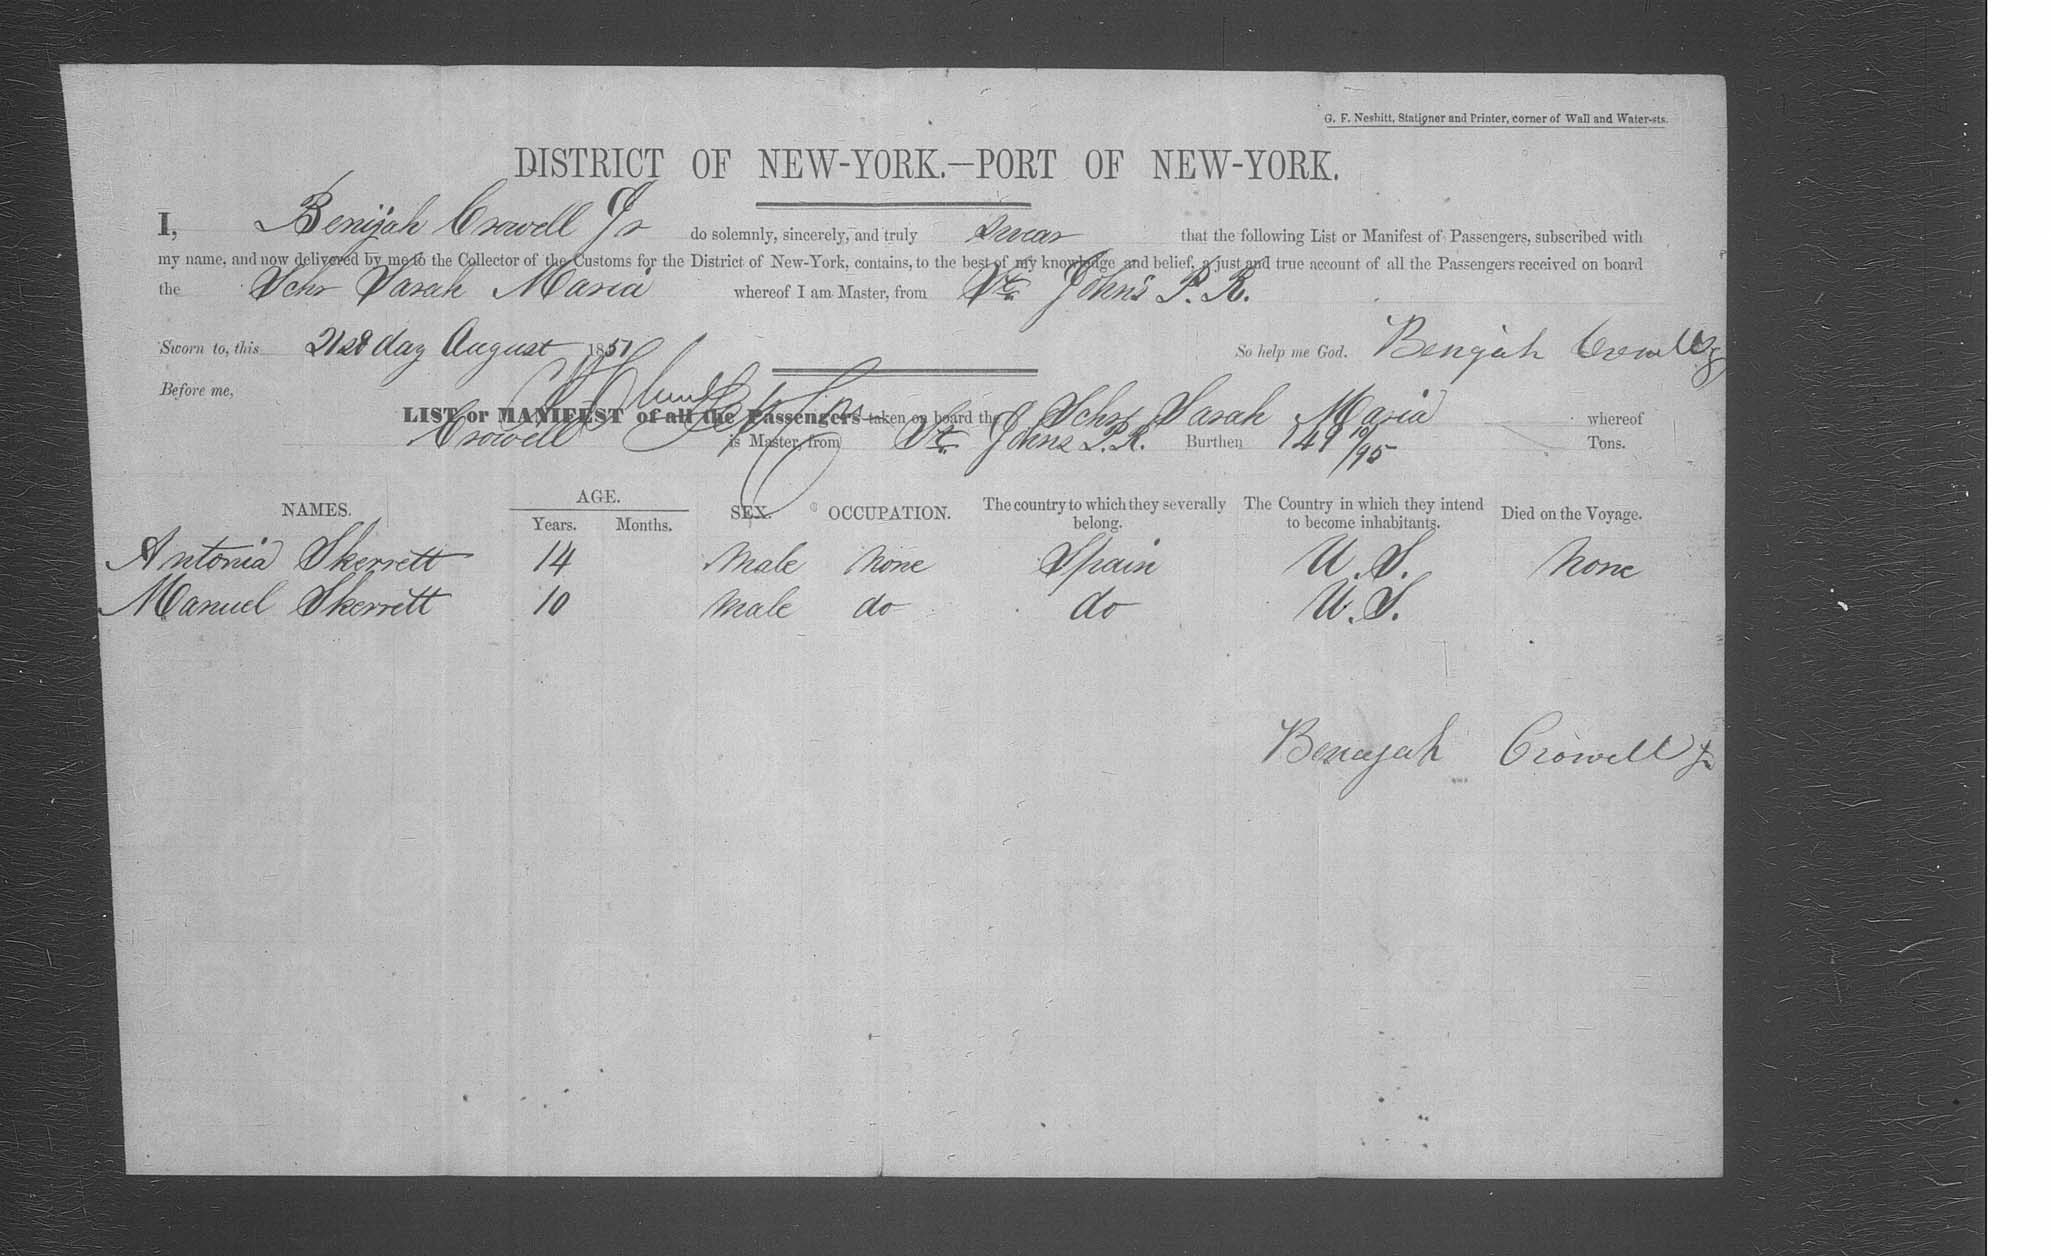 G. F. Nesbitt, Stationer and Printer, corner of Wall and Water-sts.
DISTRICT OF NEW-YORK.—PORT OF NEW-YORK.
I, Benijah Crowell Jr do solemnly, sincerely, and truly swear that the following List or Manifest of Passengers, subscribed with
my name, and now delivered by me to the Collector of the Customs for the District of New-York, contains, to the best of my knowledge and belief, a just and true account of all the Passengers received on board
the Schr Sarah Maria whereof I am Master, from St. Johns P. R.
Sworn to, this 21st day August 1851 So help me God. Benajah Crowell Jr
Before me,
LIST or MANIFEST of all the Passengers taken on board the Schr Sarah Maria whereof
Crowell is Master, from St. Johns P. R. Burthen 149 /95 Tons.
NAMES. AGE. Years. Months. SEX. OCCUPATION. The country to which they severally belong. The Country in which they intend to become inhabitants. Died on the Voyage.
Antonia Skerrett 14 Male None Spain U. S. None
Manuel Skerrett 10 Male do do U. S.
Benajah Crowell Jr